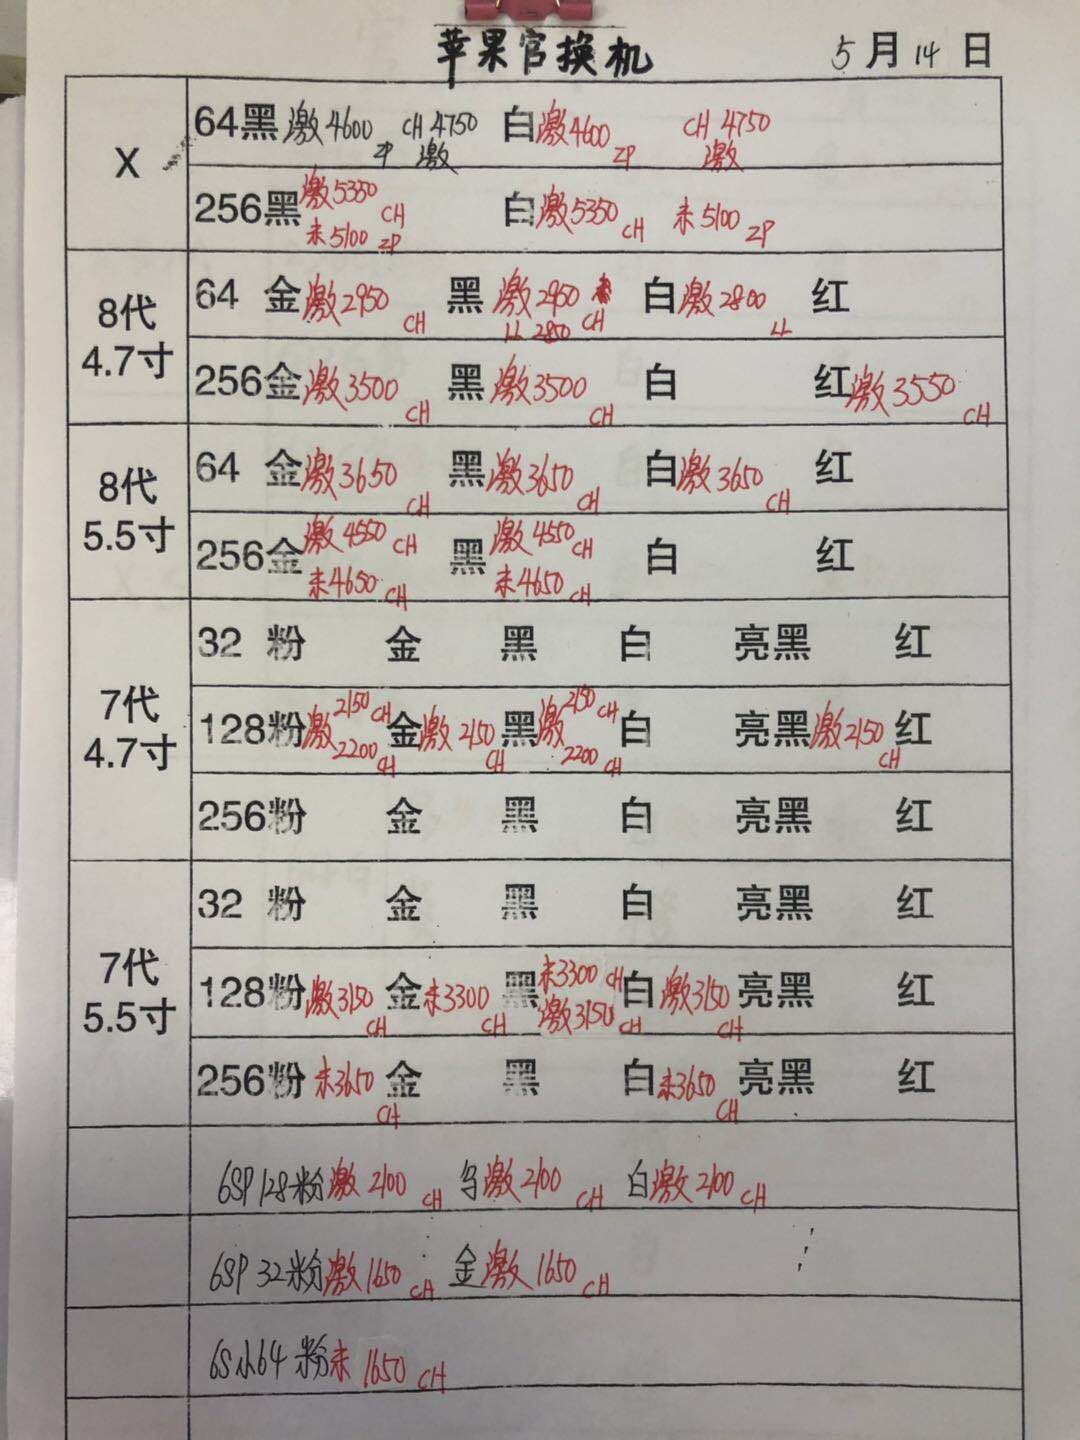 苹果官换机 5月14日
X
64黑 激4600 ZP CH 4750 激 白 激4600 ZP CH 4750 激
256黑 激5350 CH 未5100 ZP 白 激5350 CH 未5100 ZP
8代 4.7寸
64 金 激2950 CH 黑 激2950 CH LL 2850 白 激2800 LL 红
256金 激3500 CH 黑 激3500 CH 白 红 激3550 CH
8代 5.5寸
64 金 激3650 CH 黑 激3650 CH 白 激3650 CH 红
256金 激4550 CH 未4650 CH 黑 激4550 CH 未4650 CH 白 红
7代 4.7寸
32 粉 金 黑 白 亮黑 红
128粉 激 2150 CH 2200 CH 金 激2150 CH 黑 激 2150 CH 2200 CH 白 亮黑 激2150 CH 红
256粉 金 黑 白 亮黑 红
7代 5.5寸
32 粉 金 黑 白 亮黑 红
128粉 激3150 CH 金 未3300 CH 黑 未3300 CH 激3150 CH 白 激3150 CH 亮黑 红
256粉 未3650 CH 金 黑 白 未3650 CH 亮黑 红
6SP 128粉 激2100 CH 激2100 CH 白 激2100 CH
6SP 32粉 激1650 CH 金 激1650 CH
6S小64 粉 未 1650 CH